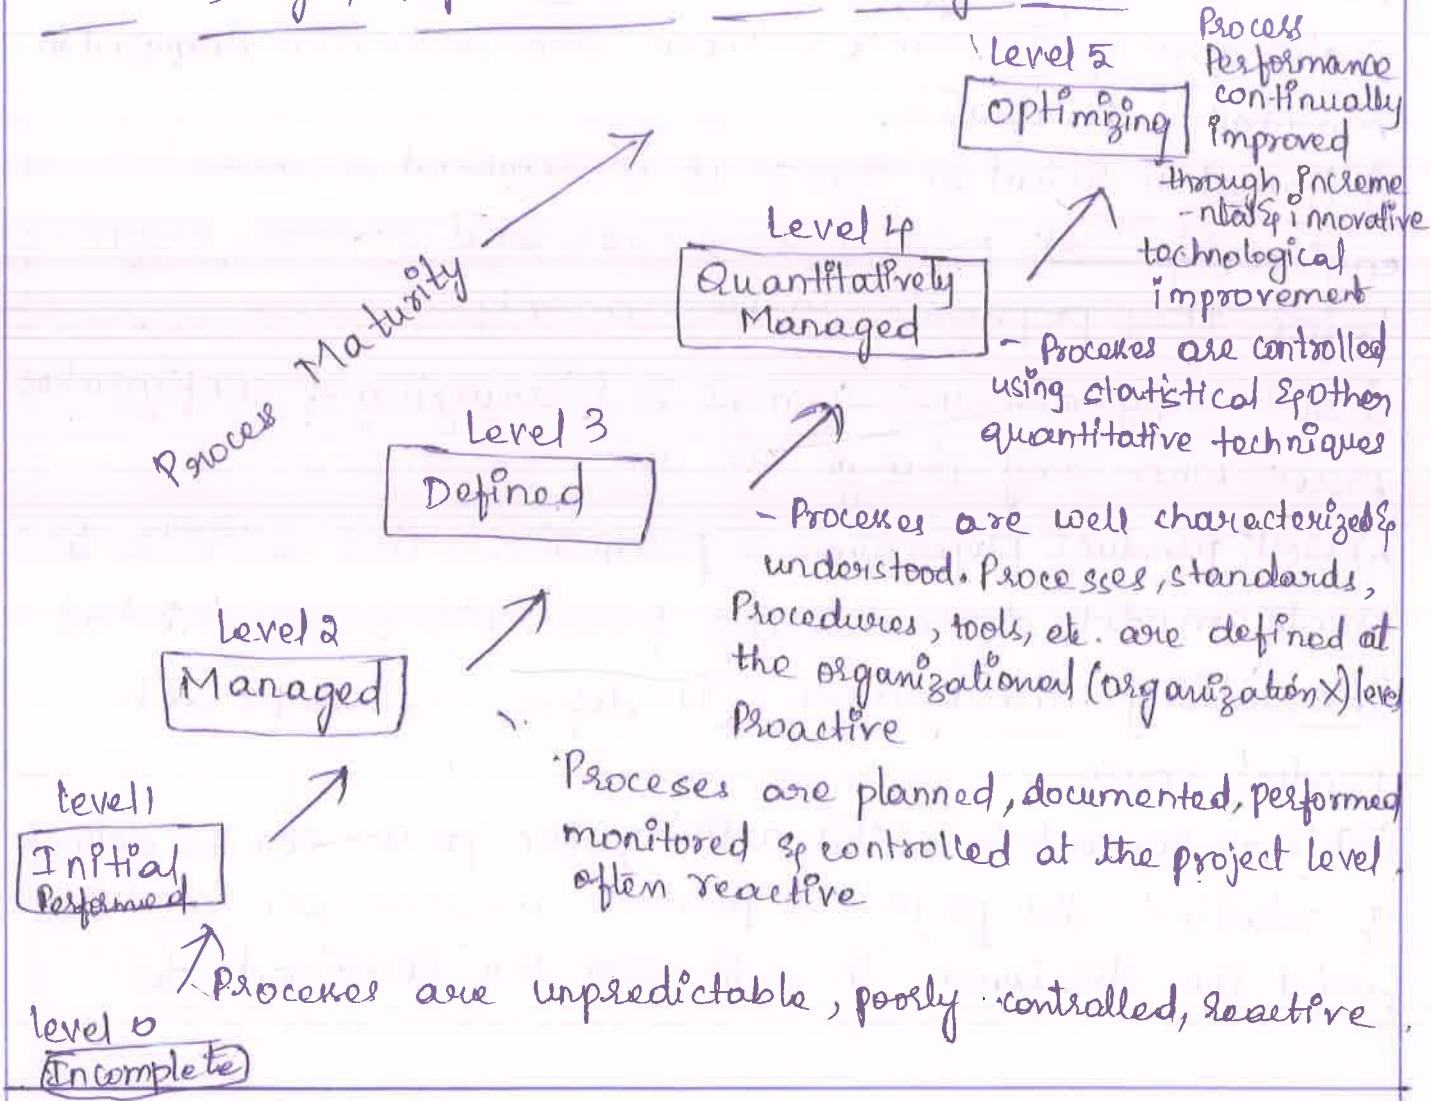 Level 5
Optimizing
Process
Performance
continually
improved
through increme
-ntal & innovative
technological
improvement
Level 4
Quantitatively
Managed
- Processes are controlled
using statistical & other
quantitative techniques
Process Maturity
Level 3
Defined
- Processes are well characterized &
understood. Processes, standards,
Procedures, tools, etc. are defined at
the organizational (organization X) level
Proactive
Level 2
Managed
Proceses are planned, documented, performed
monitored & controlled at the project level
often reactive
level 1
Initial
Performed
Processes are unpredictable, poorly controlled, reactive.
level 0
Incomplete